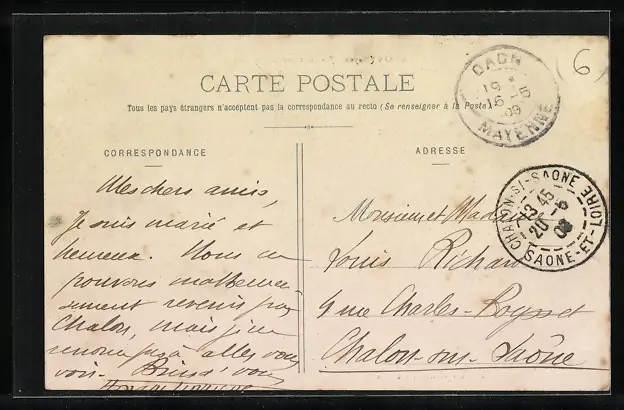 CARTE POSTALE
Tous les pays étrangers n'acceptent pas la correspondance au recto (Se renseigner à la Poste)
CORRESPONDANCE
Mes chers amis,
Je suis marié et
heureux. Nous ne
pouvons malheureu-
sement revenir par
Chalon, mais j'ne
renonce pas à aller vous
voir. Bien à vous
ADRESSE
Monsieur et Madame
Louis Richard
rue Charles-
Chalon-sur-Saône
CRAON
19 *
16 5
09
MAYENNE
CHALON-S/-SAONE
13 45
20 -5
09
SAONE-ET-LOIRE
(6)